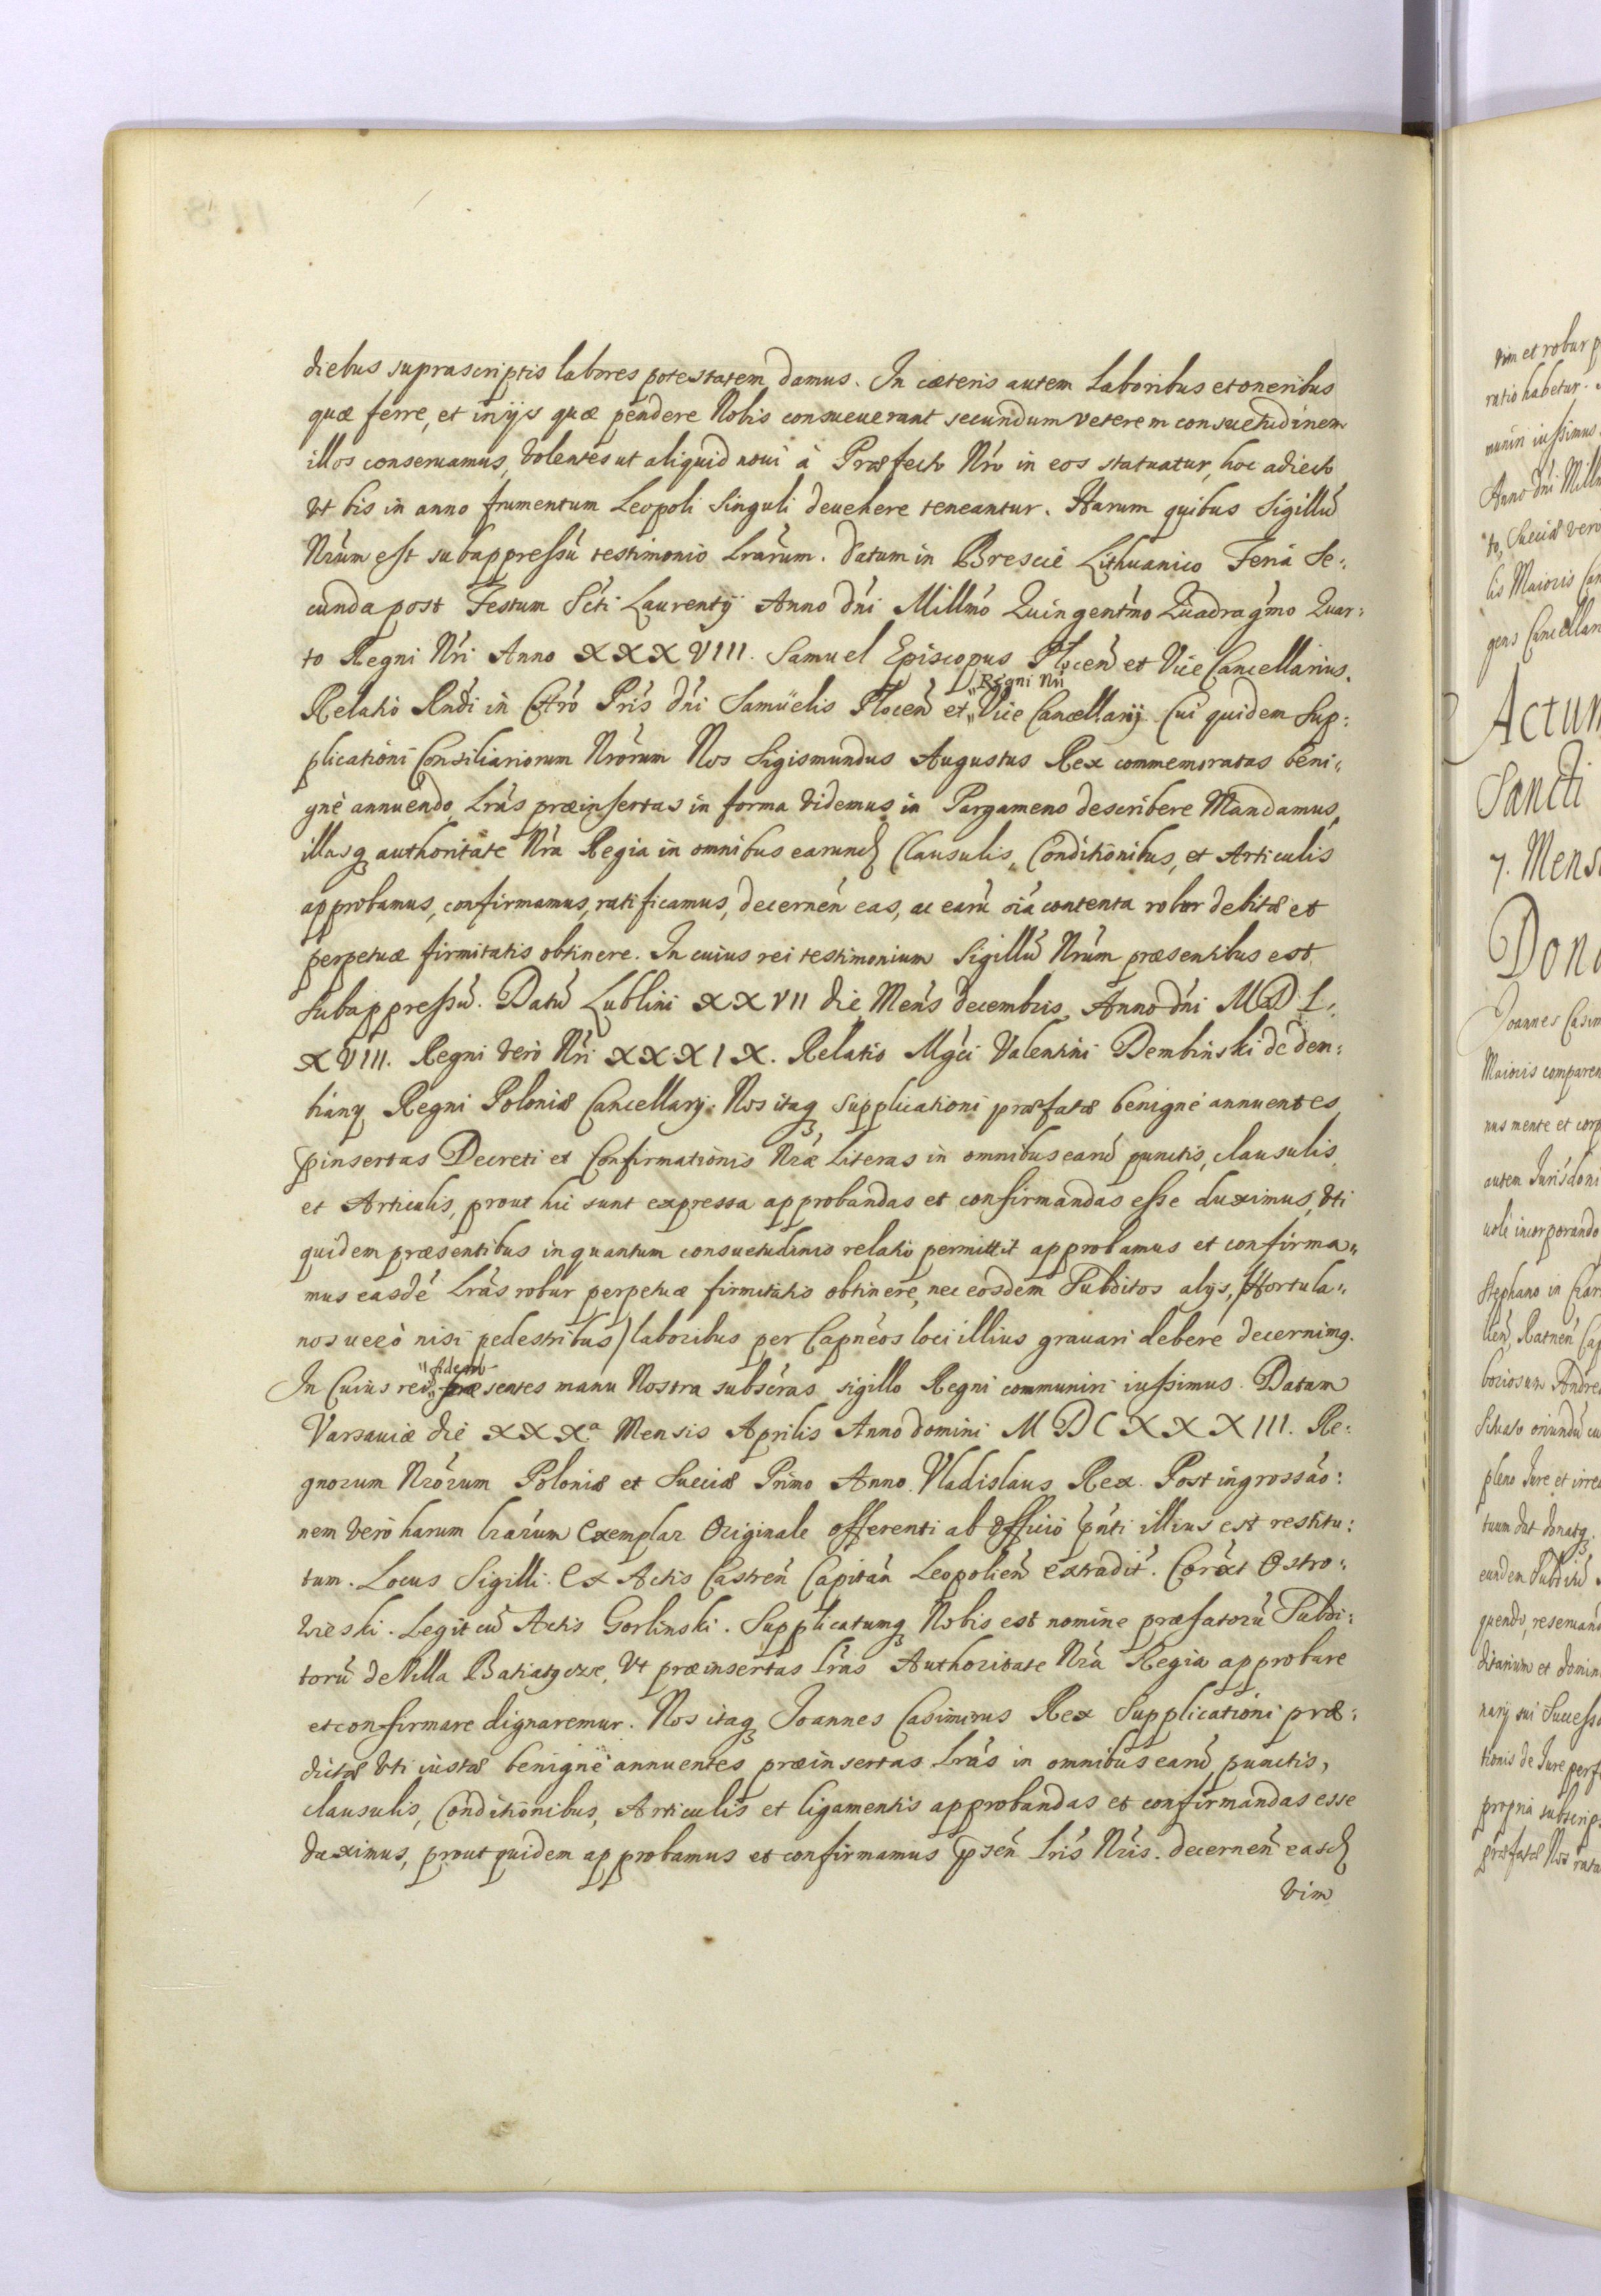 diebus suprascriptis labores potestatem damus. In cæteris autem Laboribus et oneribus
quæ ferre, et in ijs quæ pendere Nobis consueuerant secundum veterem consuetudinem
illos conseruamus, Volentes ut aliquid noui à Præfecto Nro in eos statuatur, hoc adiecto
Vt bis in anno frumentum Leopoli Singuli deuehere teneantur. Harum quibus Sigillũ
Nrũm est subappressũ testimonio Lrárum. Datum in Brescie Lithuanico Feria Se:
cunda post Festum Scti Laurentij Anno dni Millmo Quingentmo Quadragmo Quar:
to Regni Nri Anno XXXVIII. Samuel Episcopus Plocen et Vice Cancellarius.
Relatio Rndi in Chro Pris dni Samuelis Plocen et „Regni Nri Vice Cancellarij. Cui quidem Sup:
plicationi Consiliariorum Nrorum Nos Sigismundus Augustus Rex commemoratas beni„
gnè annuendo, Lrás præinsertas in forma videmus in Pargameno describere Mandamus,
illasq authoritate Nra Regia in omnibus earund Clausulis, Conditionibus, et Articulis
approbamus, confirmamus, ratificamus, decernen eas, ac earũ oia contenta robur debitæ et
perpetuæ firmitatis obtinere. In cuius rei testimonium Sigillũ Nrũm præsentibus est
subappressũ. Datũ Lublini XXVII die Mens decembris, Anno dni MDL:
XVIII. Regni verò Nri XXXIX. Relatio Mgci Valentini Dembinski de dem:
biany Regni Poloniæ Cancellarij. Nos itaq supplicationi præfatæ benignè annuentes
pinsertas Decreti et Confirmationis Nræ Literas in omnibus earũ punctis, clausulis,
et Articulis, prout hic sunt expressa approbandas et confirmandas esse duximus, Vti
quidem præsentibus in quantum consuetudinis relatio permittit approbamus et confirma„
mus easdẽ Lrás robur perpetuæ firmitatis obtinere, nec eosdem Subditos alijs, (Hortula„
nos uerò nisi pedestribus) laboribus per Capneos loci illius grauari debere decernimq.
In Cuius rei „fidem præsentes manu Nostra subscras sigillo Regni communiri iussimus. Datum
Varsauiæ die XXX.a Mensis Aprilis Anno domini MDCXXXIII. Re:
gnorum Nrorum Poloniæ et Sueciæ Primo Anno. Vladislaus Rex. Post ingrossáo:
nem verò harum lrarum Exemplar Originale offerenti ab officio pnti illius est restitu:
tum. Locus Sigilli. Ex Actis Castren Capitan Leopolien Extradit. Corrext Ostro:
wieski. Legit cũ Actis Gorlinski. Supplicatumq Nobis est nomine præfatorũ Subdi:
torũ de Villa Batiatycze, Vt præinsertas lrás Authoritate Nra Regia approbare
et confirmare dignaremur. Nos itaq Joannes Casimirus Rex Supplicationi præ:
dictæ Vti iustæ benignè annuentes præinsertas Lrás in omnibus earũ punctis,
clausulis, Conditionibus, Articulis et ligamentis approbandas et confirmandas esse
duximus, prout quidem approbamus et confirmamus psen lris Nris. decernen easd
Vim
vim et robur p
ratio habetur.
muniri iussimus.
Anno dni Mill
to, Sueciæ vero
lis Maioris Can
gens Cancellar
Actum
Sancti
7. Mens
Dona
Joannes Casim
Maioris comparen
nus mente et corp
autem Jurisdoni
uoli incorporando
Stephano in Char
llen, Ratnen Cap
boriosum Andre
Schiato oriundũ cu
pleno Jure et irre
tuum dat donatq.
eundem Subditũ
quendo, reseruand
ditarium et domin
narij sui Success
tionis de Jure perf
propria subscrip
præfatæ Nos rata